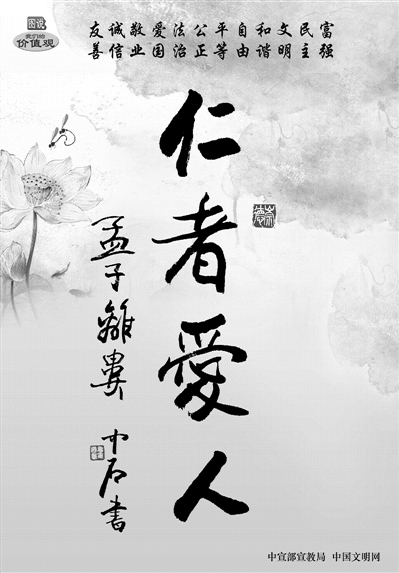 图说
我们的
价值观
富强 民主 文明 和谐 自由 平等 公正 法治 爱国 敬业 诚信 友善
仁者愛人
孟子離婁 中石書
中宣部宣教局 中国文明网